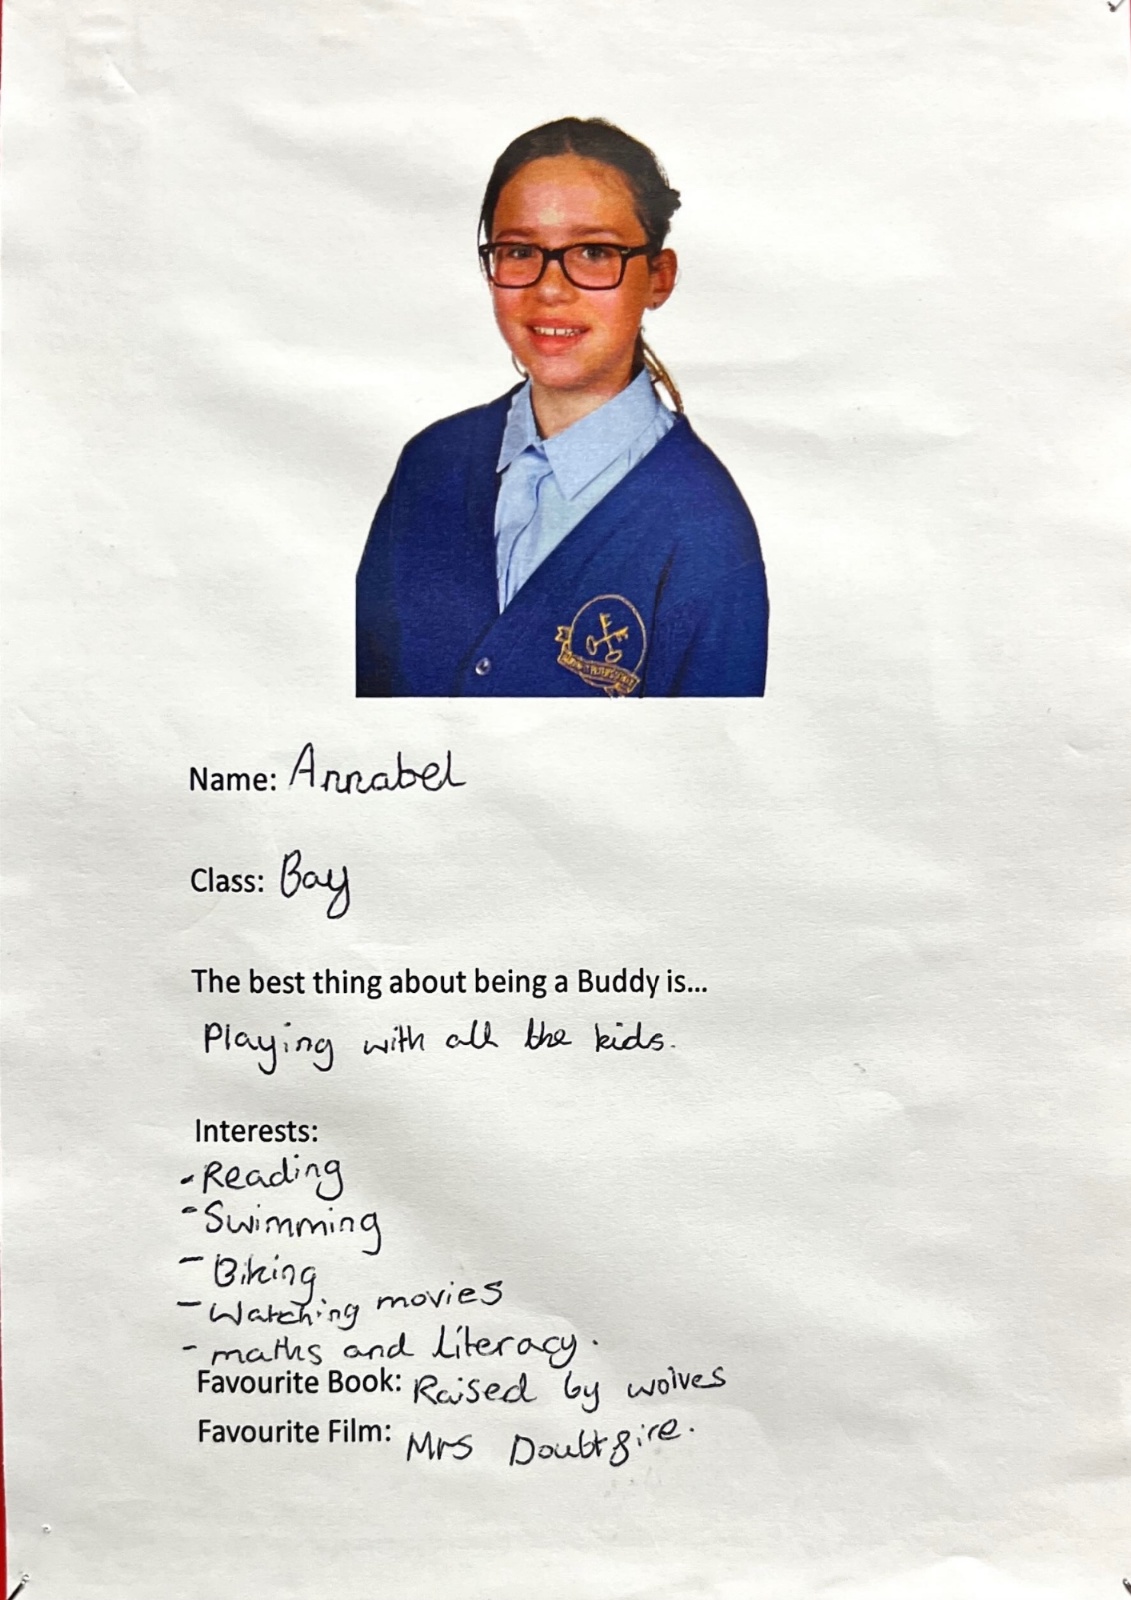 Name: Annabel
Class: Bay
The best thing about being a Buddy is...
Playing with all the kids.
Interests:
- Reading
- Swimming
- Biking
- Watching movies
- maths and literacy.
Favourite Book: Raised by wolves
Favourite Film: Mrs Doubtfire.